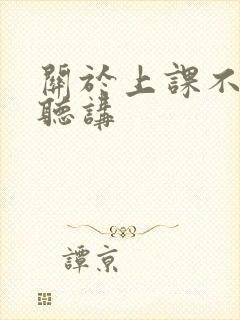 關於上課不
聽講
譚京